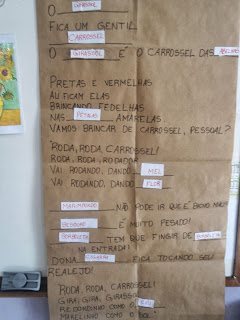 O GIRASSOL
FICA UM GENTIL
CARROSSEL
O GIRASSOL É O CARROSSEL DAS ABELHAS
PRETAS E VERMELHAS
ALI FICAM ELAS
BRINCANDO FEDELHAS
NAS PÉTALAS AMARELAS.
VAMOS BRINCAR DE CARROSSEL, PESSOAL?
"RODA, RODA, CARROSSEL!
RODA, RODA, RODADOR
VAI RODANDO, DANDO MEL
VAI RODANDO, DANDO FLOR"
MARIMBONDO NÃO PODE IR QUE É BICHO MAU
PESSOAL É MUITO PESADO!
BORBOLETA TEM QUE FINGIR DE BORBOLETA
NA ENTRADA!
DONA CIGARRA FICA TOCANDO SEU
REALEJO!
"RODA, RODA, CARROSSEL!
GIRA, GIRA, GIRASSOL
REDONDINHO COMO O CÉU
MARELINHO COMO O SOL"